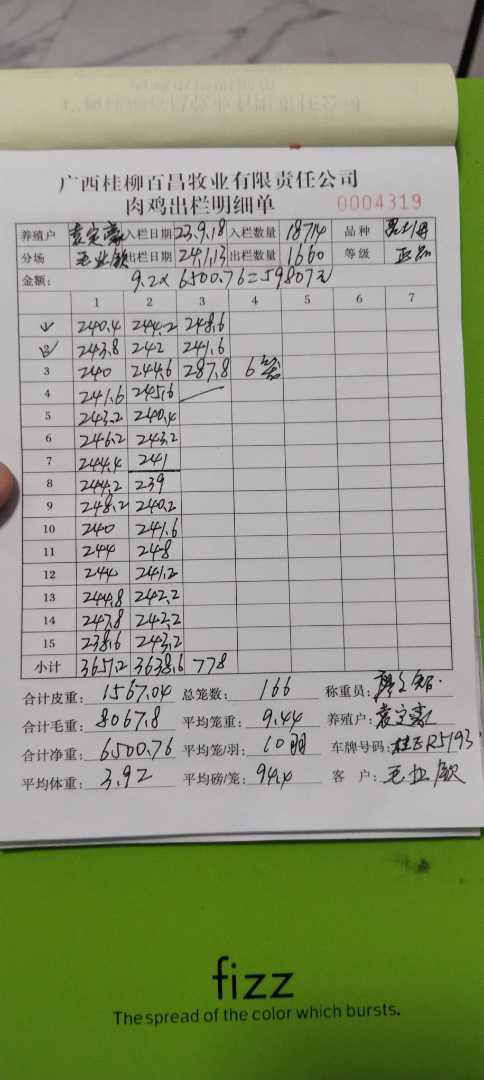 广西桂柳百昌牧业有限责任公司
肉鸡出栏明细单 0004319
养殖户 袁定豪 入栏日期 23.9.18 入栏数量 18714 品种
分场 入栏日期 24.1.13 出栏数量 1660 等级 正品
金额: 9.2× 6500.76=59807元
1 2 3 4 5 6 7
1 240.4 244.2 248.6
2 243.8 242 241.6
3 240 244.6 287.8 6笼
4 241.6 245.6
5 243.2 240.4
6 246.2 243.2
7 244.4 241
8 244.2 239
9 248.2 240.2
10 240 241.6
11 244 248
12 244 241.2
13 244.8 242.2
14 247.8 242.2
15 238.6 243.2
小计 3651.2 3638.6 778
合计皮重: 1567.04 总笼数: 166 称重员:
合计毛重: 8067.8 平均笼重: 9.44 养殖户: 袁定豪
合计净重: 6500.76 平均笼/羽: 10羽 车牌号码: 桂R5193
平均体重: 3.92 平均磅/笼: 94.4 客 户:
fizz
The spread of the color which bursts.